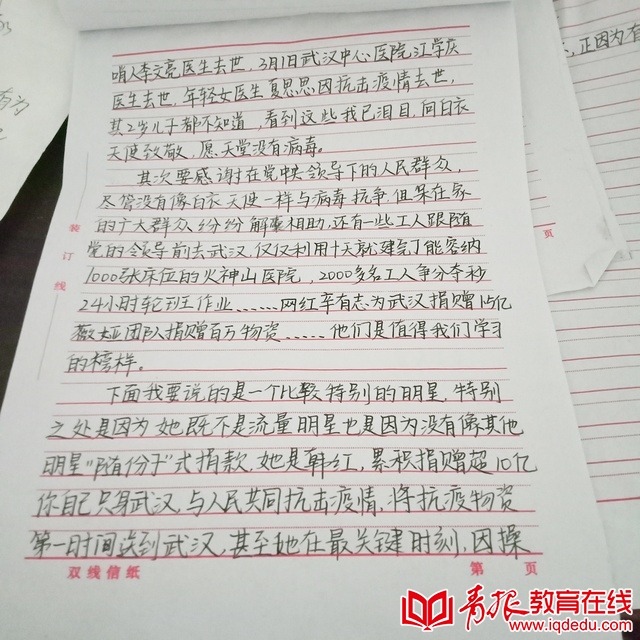 哨人李文亮医生去世，3月1日武汉中心医院江学庆
医生去世，年轻女医生夏思思因抗击疫情去世，
其2岁儿子都不知道，看到这些我已泪目，向白衣
天使致敬，愿天堂没有病毒。
其次要感谢在党中央领导下的人民群众，
尽管没有像白衣天使一样与病毒抗争，但呆在家
的广大群众纷纷解囊相助，还有一些工人跟随
党的领导前去武汉，仅仅利用十天就建完了能容纳
1000张床位的火神山医院，2000多名工人争分夺秒
24小时轮班作业……网红辛有志为武汉捐赠1.5亿
薇娅团队捐赠百万物资……他们是值得我们学习
的榜样。
下面我要说的是一个比较特别的明星，特别
之处是因为她既不是流量明星也是因为没有像其他
明星“随份子”式捐款，她是韩红，累积捐赠超10亿
你自己只身武汉，与人民共同抗击疫情，将抗疫物资
第一时间送到武汉，甚至她在最关键时刻，因操
双线信纸 第 页
装订线
正因为有
页
有为
青报教育在线
www.iqdedu.com